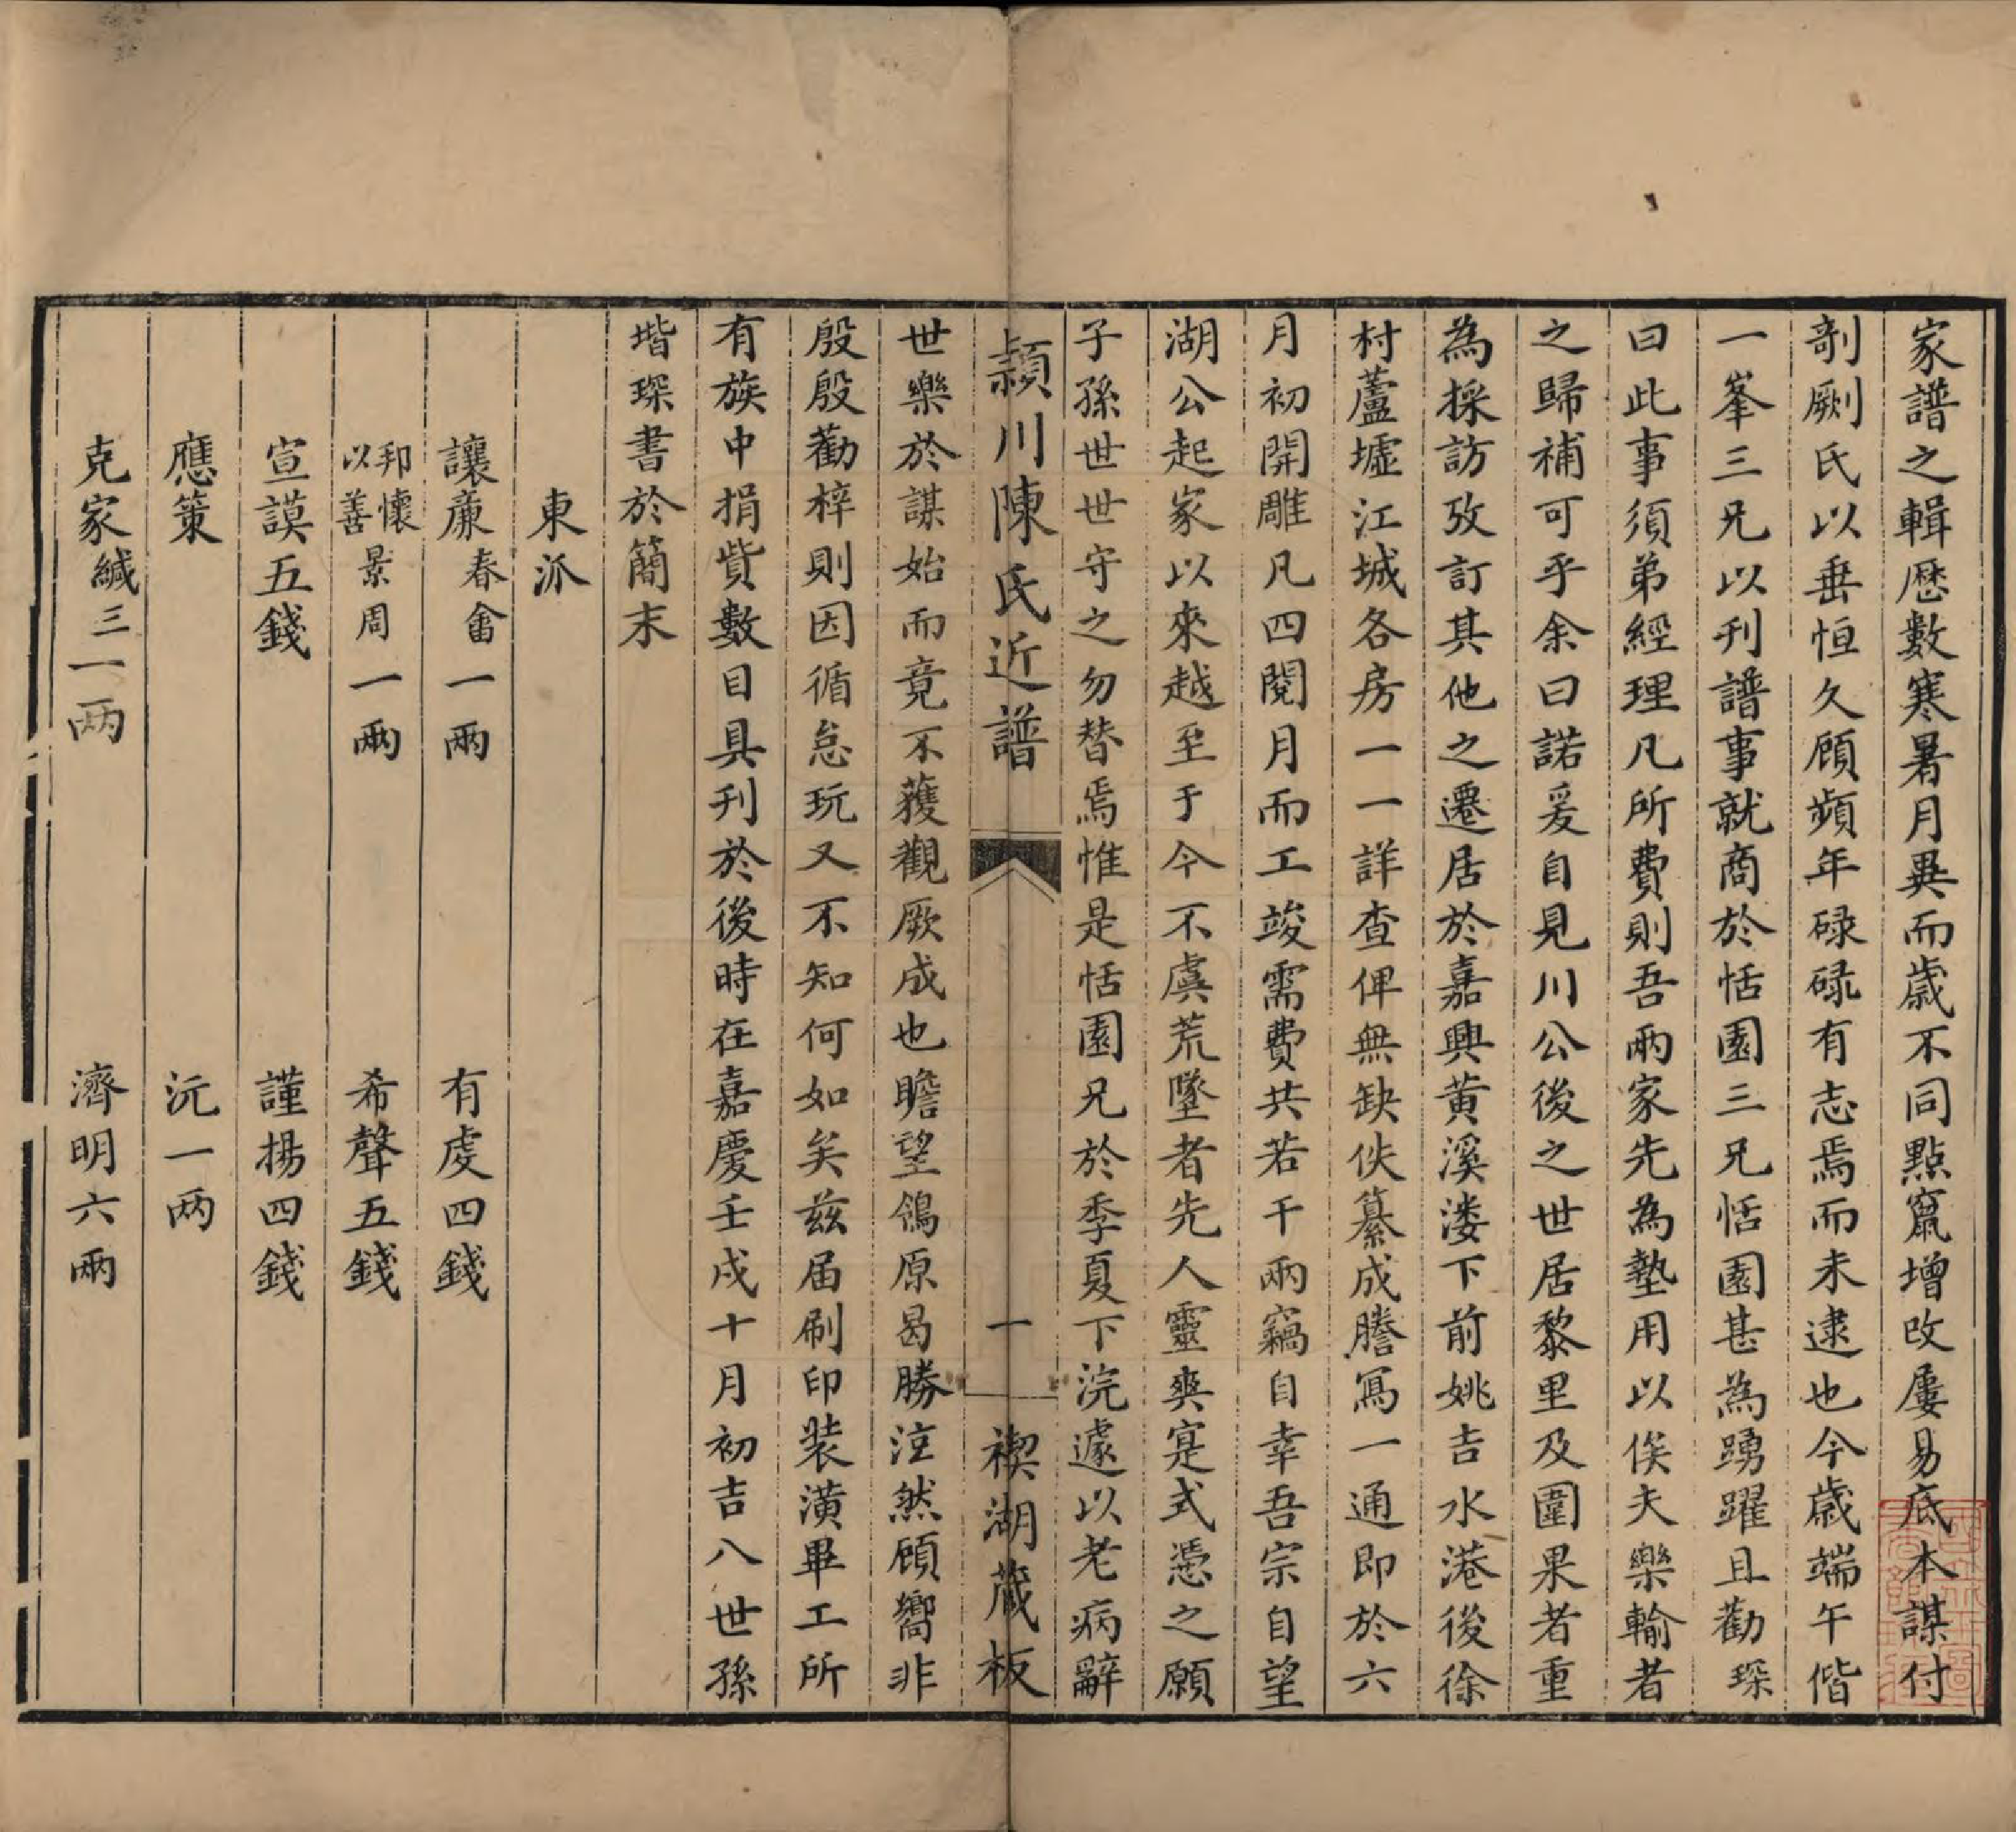 家譜之輯歷數寒暑月異而歲不同點竄增改屢易底本謀付
剞劂氏以垂恒久顧頻年碌碌有志焉而未逮也今歲端午偕
一峯三兄以刋譜事就商於恬園三兄恬園甚為踴躍且勸琛
曰此事須弟經理凡所費則吾兩家先為墊用以俟夫樂輸者
之歸補可乎余曰諾爰自見川公後之世居黎里及圍果者重
為採訪攷訂其他之遷居於嘉興黄溪漊下前姚吉水港後徐
村蘆墟江城各房一一詳查俾無缺佚纂成謄寫一通即於六
月初開雕凡四閱月而工竣需費共若干兩竊自幸吾宗自望
湖公起家以來越至于今不虞荒墜者先人靈爽寔式憑之願
子孫世世守之勿替焉惟是恬園兄於季夏下浣遽以老病辭
潁川陳氏近譜 一 禊湖蔵板
世樂於謀始而竟不獲觀厥成也瞻望鴒原曷勝泫然顧嚮非
殷殷勸梓則因循怠玩又不知何如矣茲届刷印装潢畢工所
有族中捐貲數目具刋於後時在嘉慶壬戌十月初吉八世孫
堦琛書於簡末
東派
讓廉春畬一兩 有虔四錢
邦懷以善景周一兩 希聲五錢
宣謨五錢 謹揚四錢
應策 沅一两
克家緘三一两 濟明六兩